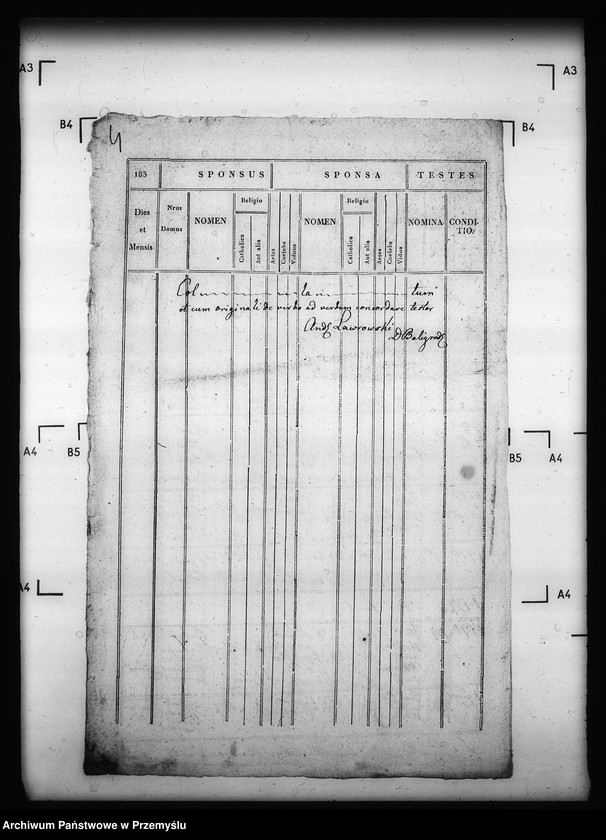 A3 A3
B4 B4
4
183 SPONSUS SPONSA TESTES
Dies et Mensis
Nrus Domus
NOMEN
Religio
Catholica
Aut alia
Aetas
Coelebs
Viduus
NOMEN
Religio
Catholica
Aut alia
Aetas
Coelebs
Vidua
NOMINA
CONDI-
TIO.
Col la tum
et cum originali de verbo ad verbum concordare testor
Lawrowski
A4 B5 B5 A4
A4 A4
Archiwum Państwowe w Przemyślu